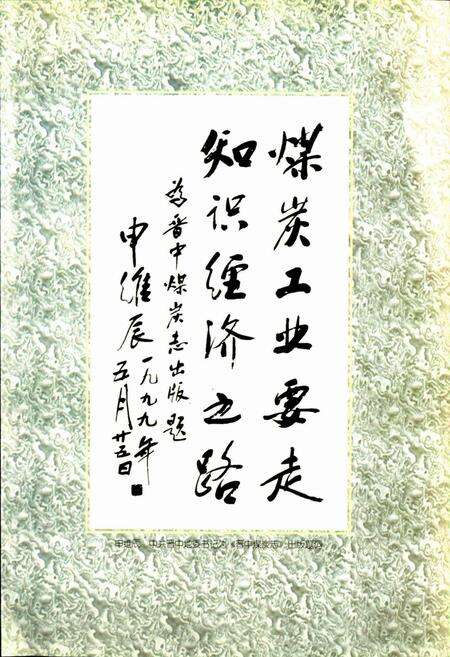 煤炭工业要走
知识经济之路
为晋中煤炭志出版题
申维辰
一九九九年
五月廿五日
申维辰 中共晋中地委书记为《晋中煤炭志》出版题词